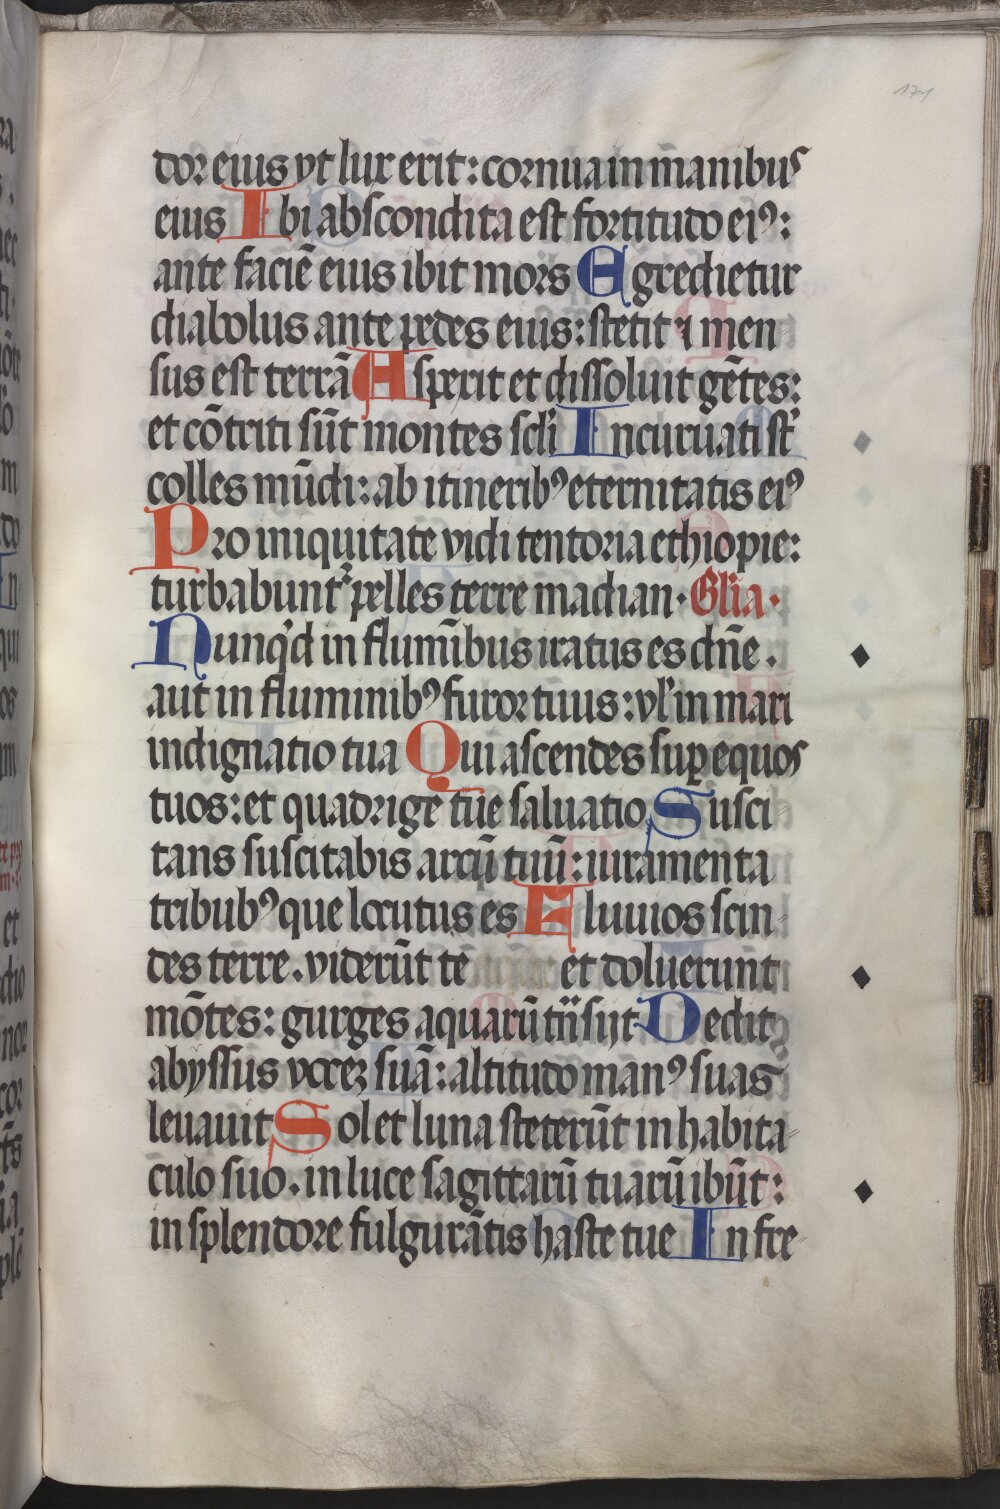 171
dor eius vt lux erit: cornua in manibus
eius Ibi abscondita est fortitudo eiꝰ:
ante faciē eius ibit mors Egredietur
diabolus ante pedes eius: stetit ⁊ men
sus est terrā Aspexit et dissoluit gētes:
et cōtriti sūt montes scl'i Incuruati st̄
colles mūdi: ab itineribꝰ eternitatis eiꝰ
Pro iniquitate vidi tentoria ethiopie:
turbabunt᷑ pelles terre madian · Gl'ia ·
Nunq'd in flumībus iratus es dn̄e .
aut in fluminibꝰ furor tuus: vl' in mari
indignatio tua Qui ascendes suꝑ equos
tuos: et quadrige tue saluatio Susci
tans suscitabis arcū tuū: iuramenta
tribubꝰ que locutus es Fluuios scin
des terre . viderūt te et doluerūnt
mōtes: gurges aquarū trāsijt Dedit
abyssus vocez suā: altitudo manꝰ suas
leuauit Sol et luna steterūt in habita
culo suo . in luce sagittarū tuarū ibūt:
in splendore fulgurātis haste tue In fre